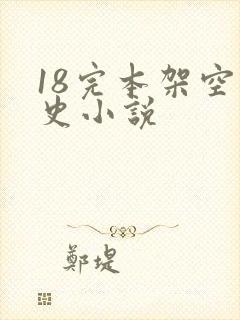 18完本架空
史小說
鄭堤